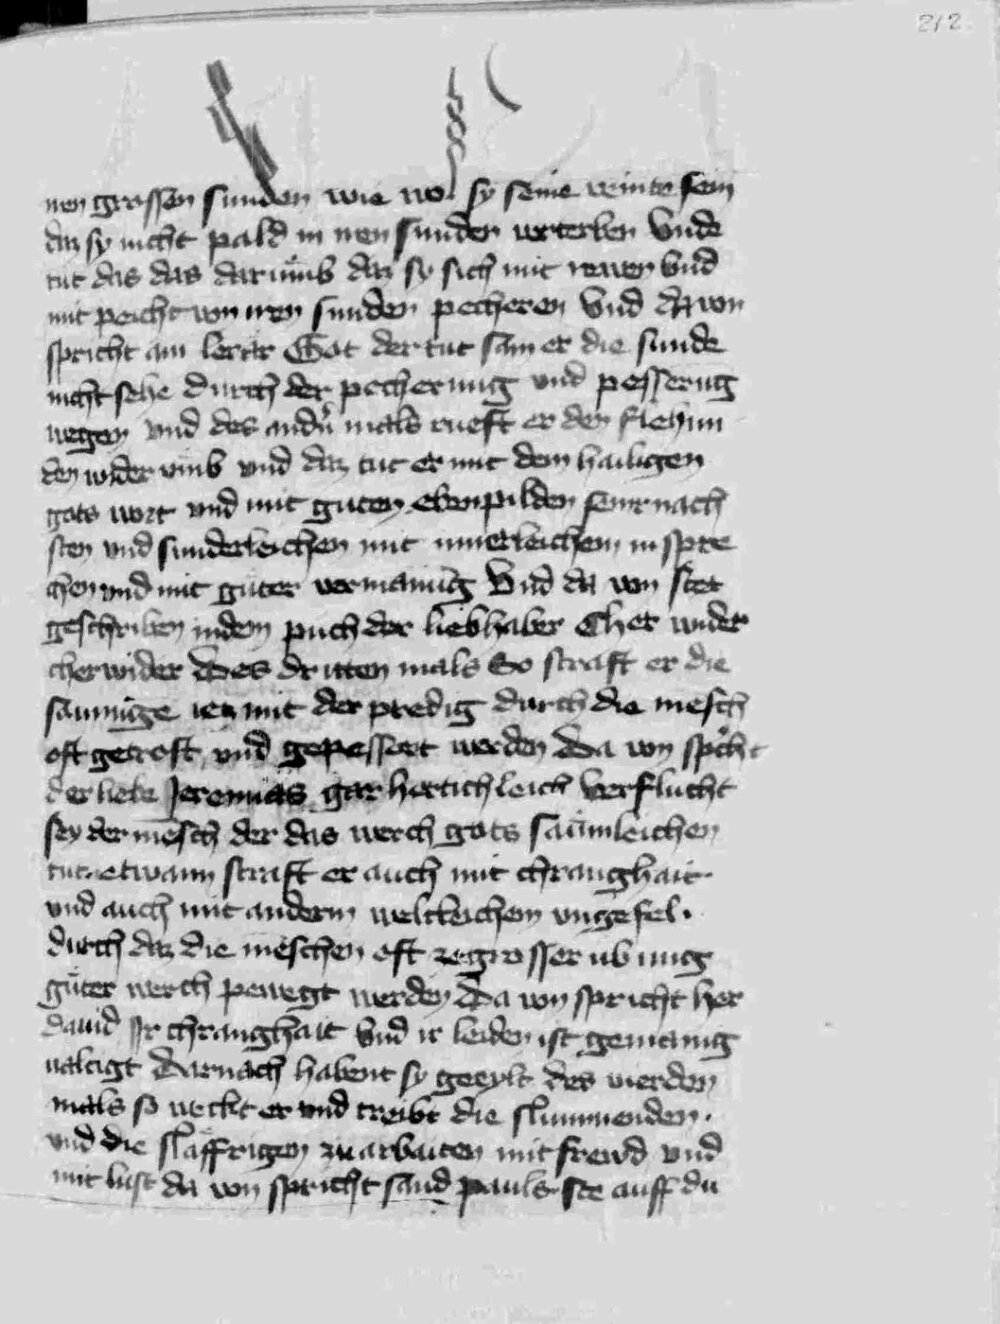 212
nen grossen sunden wie wol sy seine veinte sein
daz sy nicht pald in iren sunden ersterben Vnde
tut das das darumb daz sy sich mit rewen vnd
mit peicht von iren sunden pecheren Vnd da von
spricht ain lerer Got der tut sam er die sunde
nicht sehe durch der pecherung vnd pesserūg
wegen vnd des andn̄ mals rueft er den fliehun
den wider vmb vnd daz tut er mit dem hailigen
gots wort vnd mit guten ebenpilden seinr nach
sten vnd sunderleichen mit innerleichem in spre
chen vnd mit guter vermanūg Vnd da von stet
geschriben in dem puch der liebhaber Cher wider
cher wider Des dritten mals So straft er die
saumige mit der predig durch die mēsch
oft getroft vnd gepessert werden Da von spricht
der liebe Jeremias gar hertichleich Verflucht
sey der mēsch der das werch gots saumleichen
tut etwann straft er auch mit chrangkhait
vnd auch mit anderm weltleichem vngefel.
durch daz die mēschen oft ze grosser ubung
guter werch pewegt werden Da von spricht her
dauid Ir chrangkhait Vnd ir leiden ist gemanig
ualtigt Darnach habent sy geeylt des vierden
mals so wecht er vnd treibt die slummenden.
vnd die slaffrigen zu arbaiten mit frewd vnd
mit lust da von spricht sand pauls ste auff du